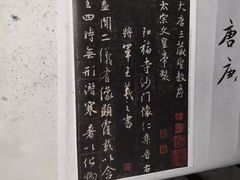 大唐三藏聖教序
太宗文皇帝製
弘福寺沙門懷仁集晉右
將軍王羲之書
蓋聞二儀有像顯覆載以含
生四時無形潛寒暑以化物
唐